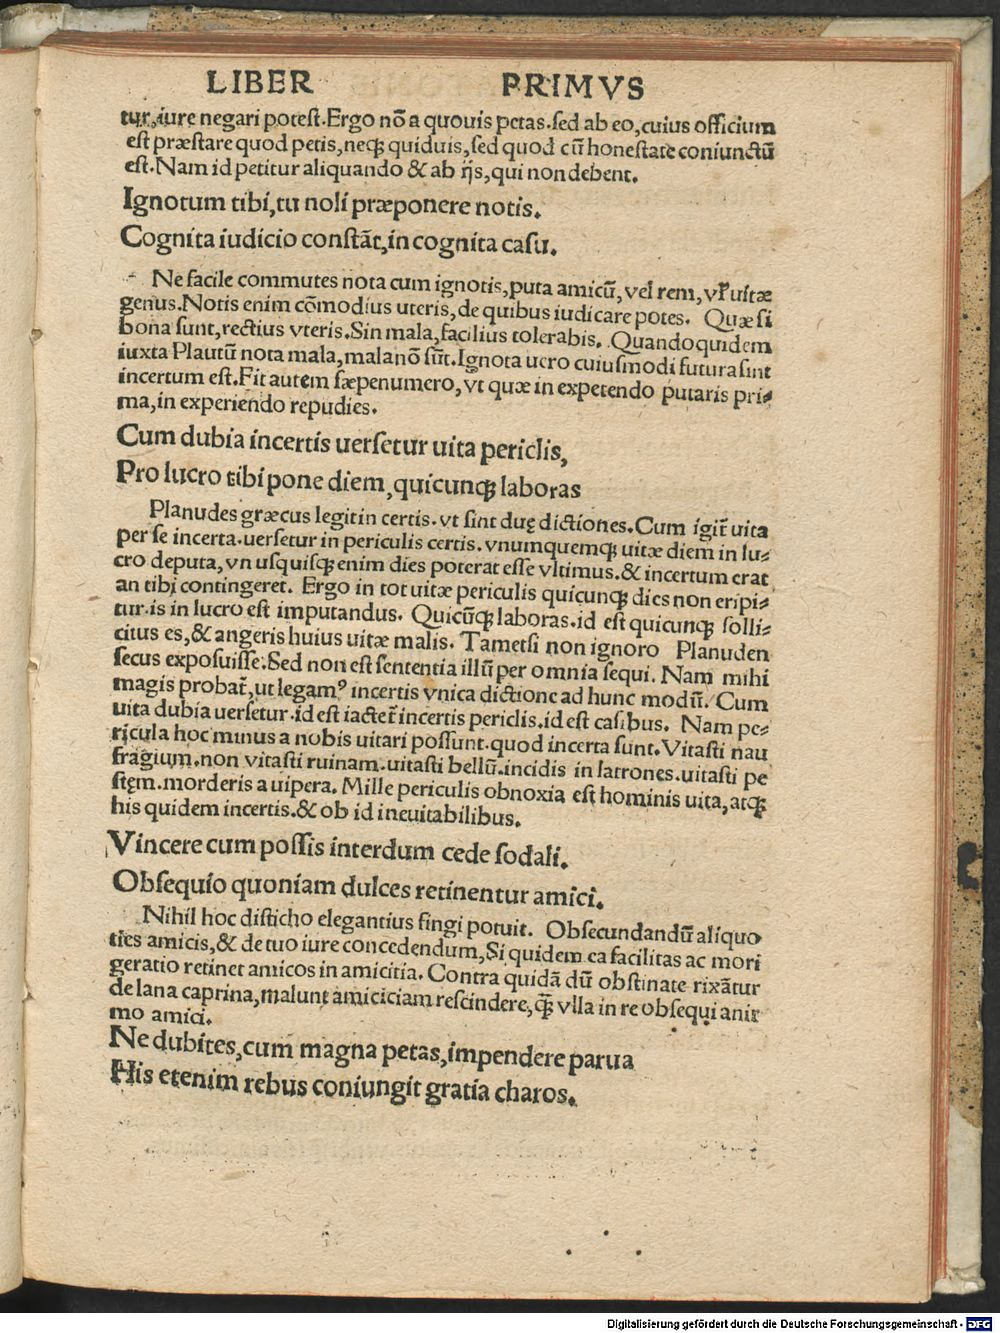 LIBER PRIMVS
tur, iure negari potest. Ergo nõ a quouis petas. sed ab eo, cuius officium
est præstare quod petis, neqꝫ quiduis, sed quod cũ honestate coniunctũ
est. Nam id petitur aliquando & ab ijs, qui non debent.
Ignotum tibi, tu noli præponere notis.
Cognita iudicio constãt, in cognita casu.
Ne facile commutes nota cum ignotis, puta amicũ, vel rem, vl' uitæ
genus. Notis enim cõmodius uteris, de quibus iudicare potes. Quæ si
bona sunt, rectius vteris. Sin mala, facilius tolerabis. Quandoquidem
iuxta Plautũ nota mala, mala nõ sũt. Ignota uero cuiusmodi futura sint
incertum est. Fit autem sæpenumero, vt quæ in expetendo putaris pri⸗
ma, in experiendo repudies.
Cum dubia incertis uersetur uita periclis,
Pro lucro tibi pone diem, quicunqꝫ laboras
Planudes græcus legit in certis. vt sint duę dictiones. Cum igit̃ uita
per se incerta. uersetur in periculis certis. vnumquemqꝫ uitæ diem in lu⸗
cro deputa, vn usquisqꝫ enim dies poterat esse vltimus. & incertum erat
an tibi contingeret. Ergo in tot uitæ periculis quicunqꝫ dies non eripi⸗
tur. is in lucro est imputandus. Quicũqꝫ laboras. id est quicunqꝫ solli⸗
citus es, & angeris huius uitæ malis. Tametsi non ignoro Planuden
secus exposuisse. Sed non est sententia illũ per omnia sequi. Nam mihi
magis probat̃, ut legamꝰ incertis vnica dictione ad hunc modũ. Cum
uita dubia uersetur. id est iactet̃ incertis periclis. id est casibus. Nam pe⸗
ricula hoc minus a nobis uitari possunt. quod incerta sunt. Vitasti nau
fragium. non vitasti ruinam. uitasti bellũ. incidis in latrones. uitasti pe
stem. morderis a uipera. Mille periculis obnoxia est hominis uita, atqꝫ
his quidem incertis. & ob id ineuitabilibus.
Vincere cum possis interdum cede sodali.
Obsequio quoniam dulces retinentur amici.
Nihil hoc disticho elegantius fingi potuit. Obsecundandũ aliquo
ties amicis, & de tuo iure concedendum, Si quidem ea facilitas ac mori
geratio retinet amicos in amicitia. Contra quidã dũ obstinate rixãtur
de lana caprina, malunt amiciciam rescindere, qꝫ̃ vlla in re obsequi ani⸗
mo amici.
Ne dubites, cum magna petas, impendere parua
His etenim rebus coniungit gratia charos.
Digitalisierung gefördert durch die Deutsche Forschungsgemeinschaft - DFG